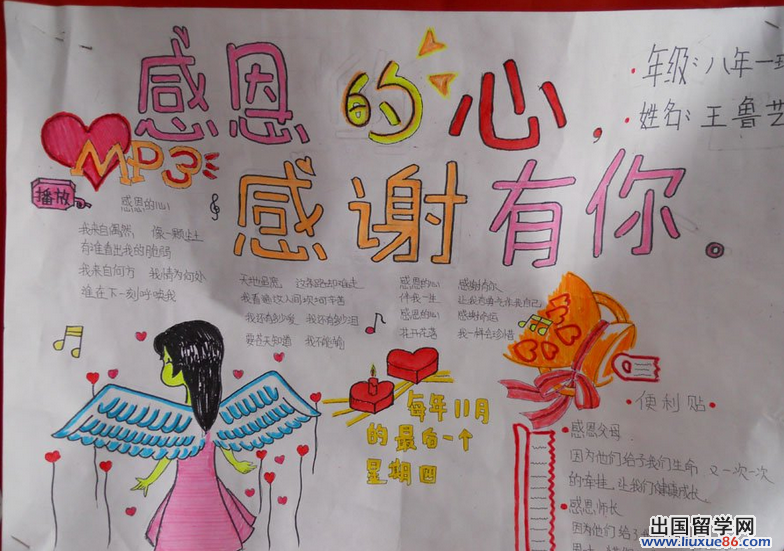 感恩的心，
感谢有你。
·年级：八年一班
·姓名：王鲁艺
MP3
播放
感恩的心
我来自偶然，像一颗尘土
有谁看出我的脆弱
我来自何方 我情归何处
谁在下一刻呼唤我
天地虽宽，这条路却难走
我看遍这人间坎坷辛苦
我还有多少爱 我还有多少泪
要苍天知道 我不认输
感恩的心 感谢有你
伴我一生 让我有勇气做我自己
感恩的心 感谢命运
花开花落 我一样会珍惜
每年11月
的最后一个
星期四
·便利贴·
·感恩父母
因为他们给予我们生命 又一次一次
的牵挂，让我们健康成长。
·感恩师长
因为他们给予
出国留学网
www.liuxue86.com